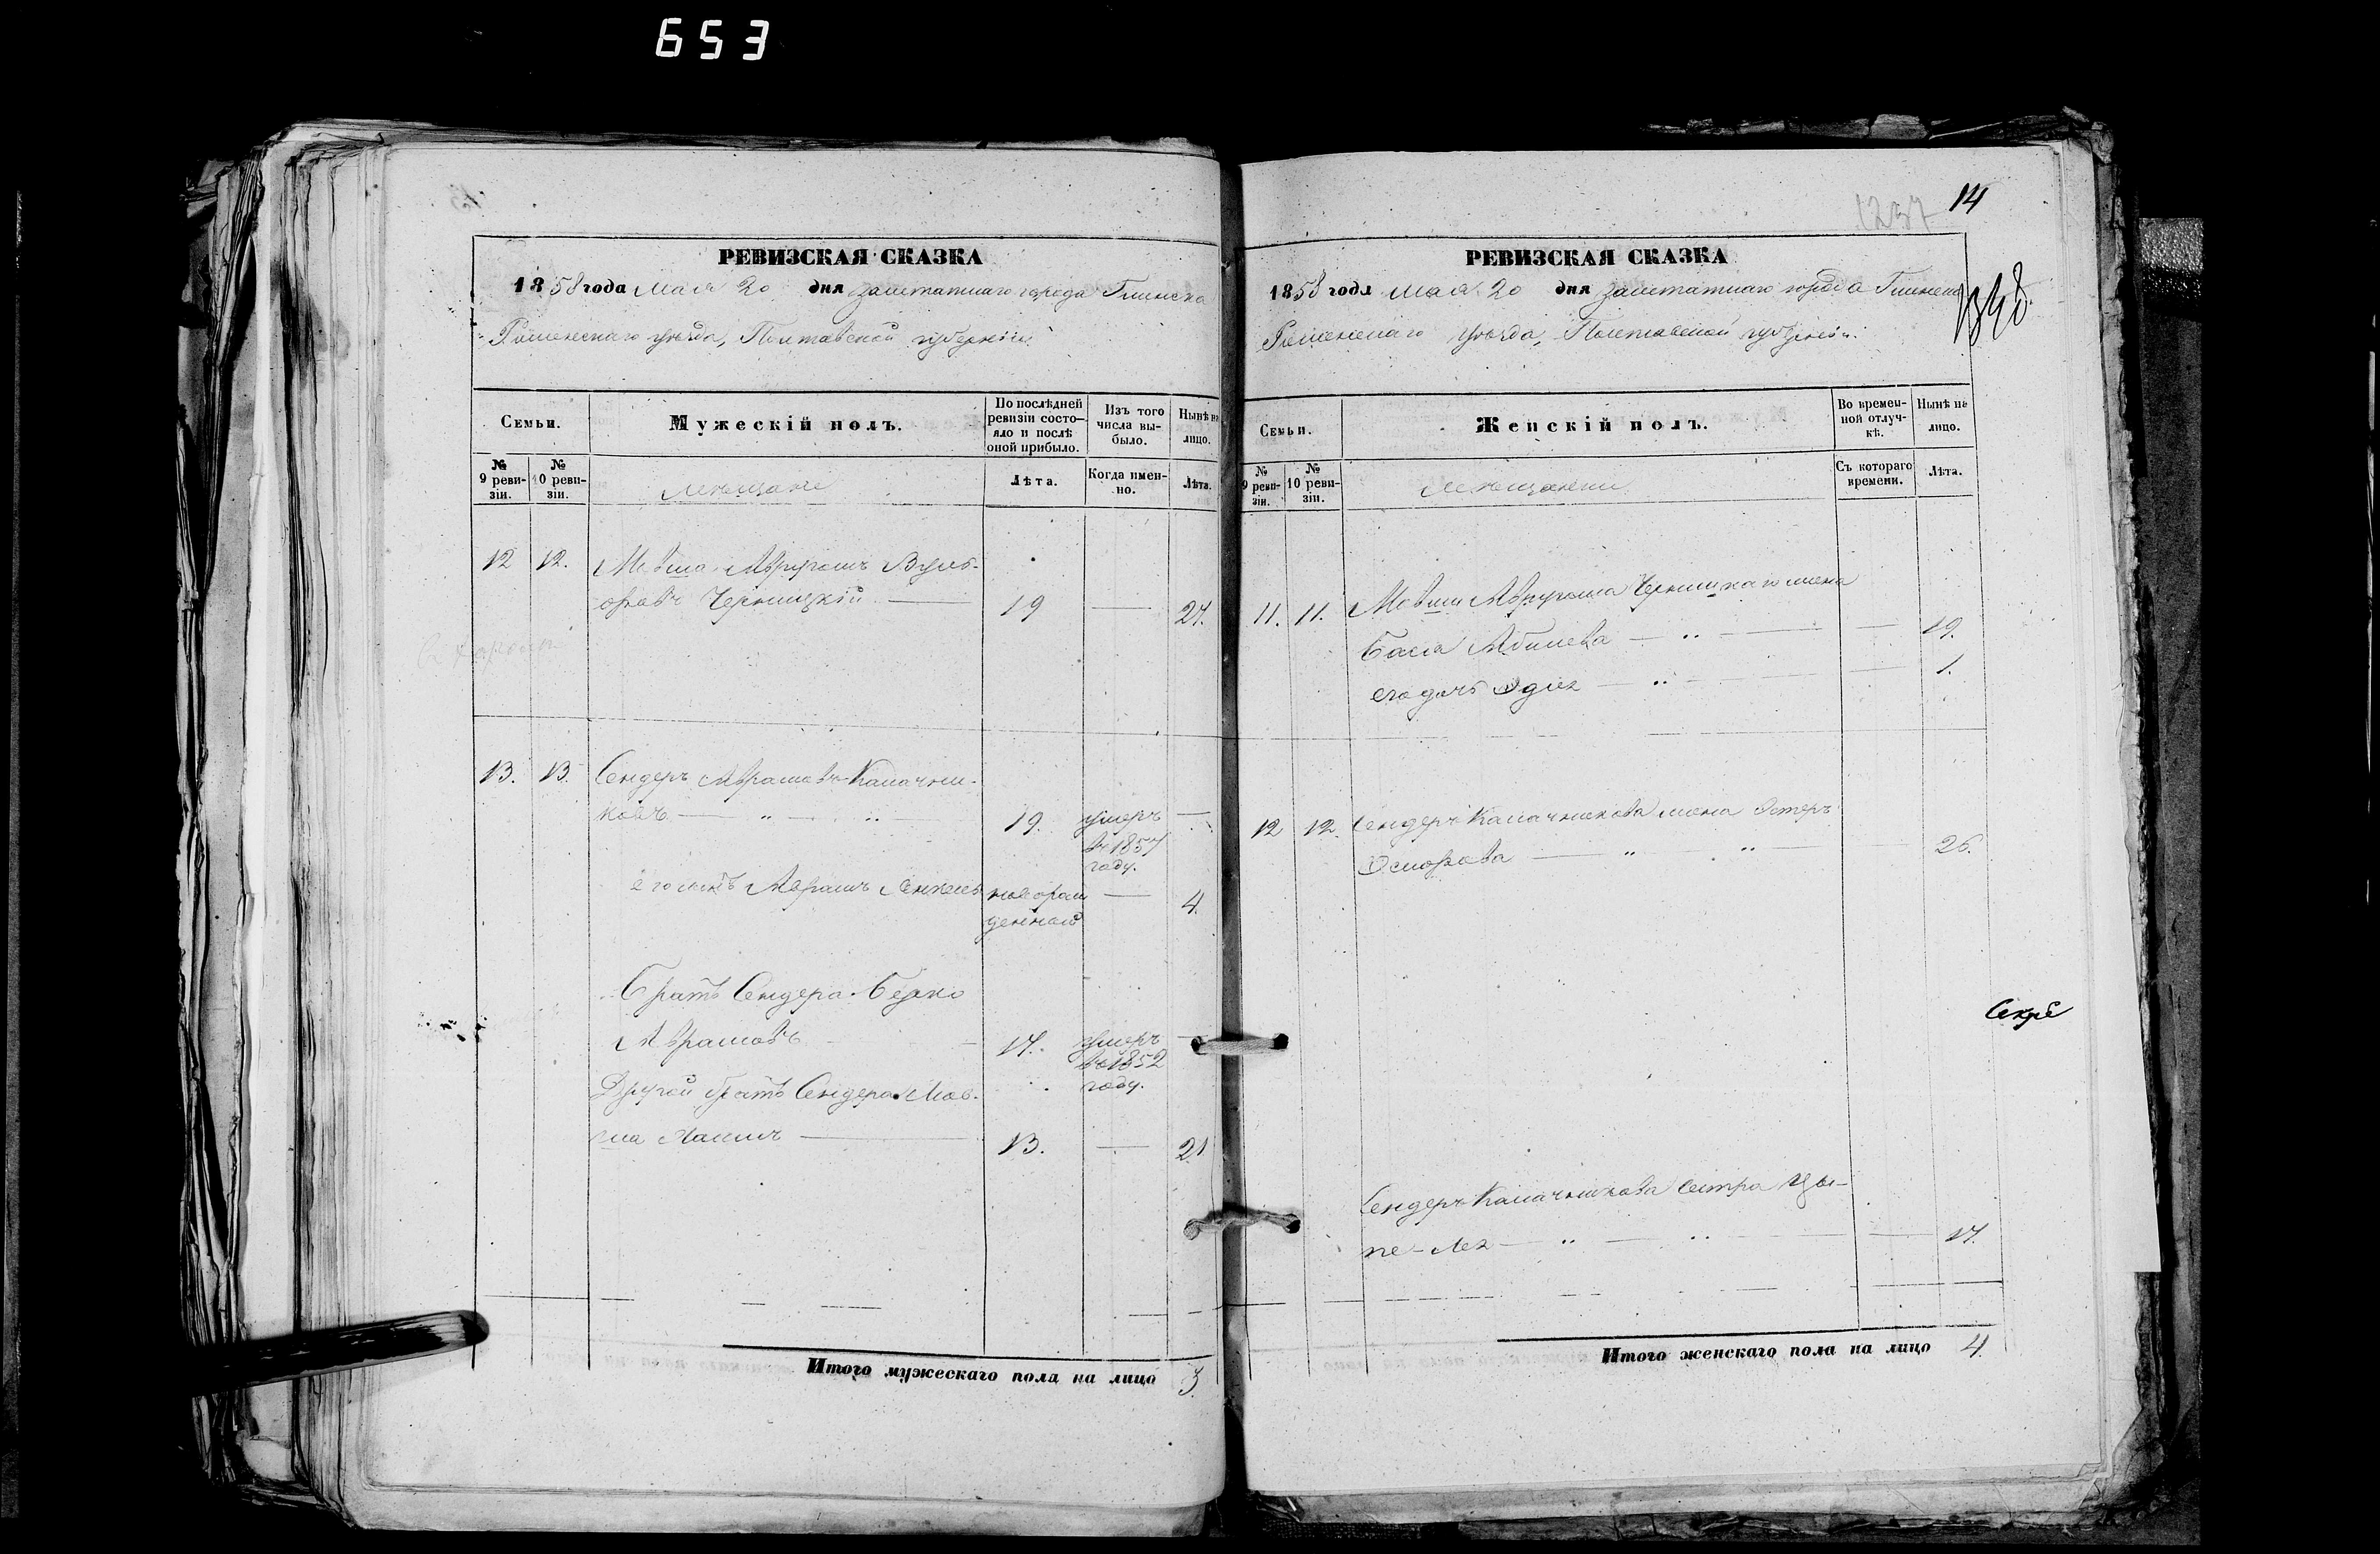 653
РЕВИЗСКАЯ СКАЗКА
1858 года мая 20 дня заштатнаго города Глинска
Роменскаго уѣзда, Полтавской губерніи.
Семьи.
Мужескій полъ.
По послѣдней ревизіи состояло и послѣ оной прибыло.
Изъ того числа выбыло.
Нынѣ на лицо.
№ 9 ревизіи.
№ 10 ревизіи.
мѣщане
Лѣта.
Когда именно.
Лѣта.
12 12. Мовша Аврумъ Вуль-
овъ Черницкій 19 — 27.
13. 13. Сендеръ Аврамовъ Калачни-
ковъ 19. умеръ —
въ 1857
году.
его сынъ Аврамъ новорож — 4.
денный
Братъ Сендера Берко
Аврамовъ 17. умеръ —
въ 1852
году.
Другой братъ Сендера Мов-
ша 13. — 21
Итого мужескаго пола на лицо 3.
14
1237
РЕВИЗСКАЯ СКАЗКА
1858 года мая 20 дня заштатнаго города Глинска
Роменскаго уѣзда, Полтавской губерніи.
Семьи.
Женскій полъ.
Во временной отлучкѣ.
Нынѣ на лицо.
№ 9 ревизіи.
№ 10 ревизіи.
мѣщанки
Съ котораго времени.
Лѣта.
11. 11. Мовши Аврума Черницкаго жена
Бася — 19.
его дочь — 1.
12 12. Сендера Калачникова жена Эстеръ
— 26.
Сендера Калачникова сестра Цы-
пе-Лея — 17.
Секре
Итого женскаго пола на лицо 4.